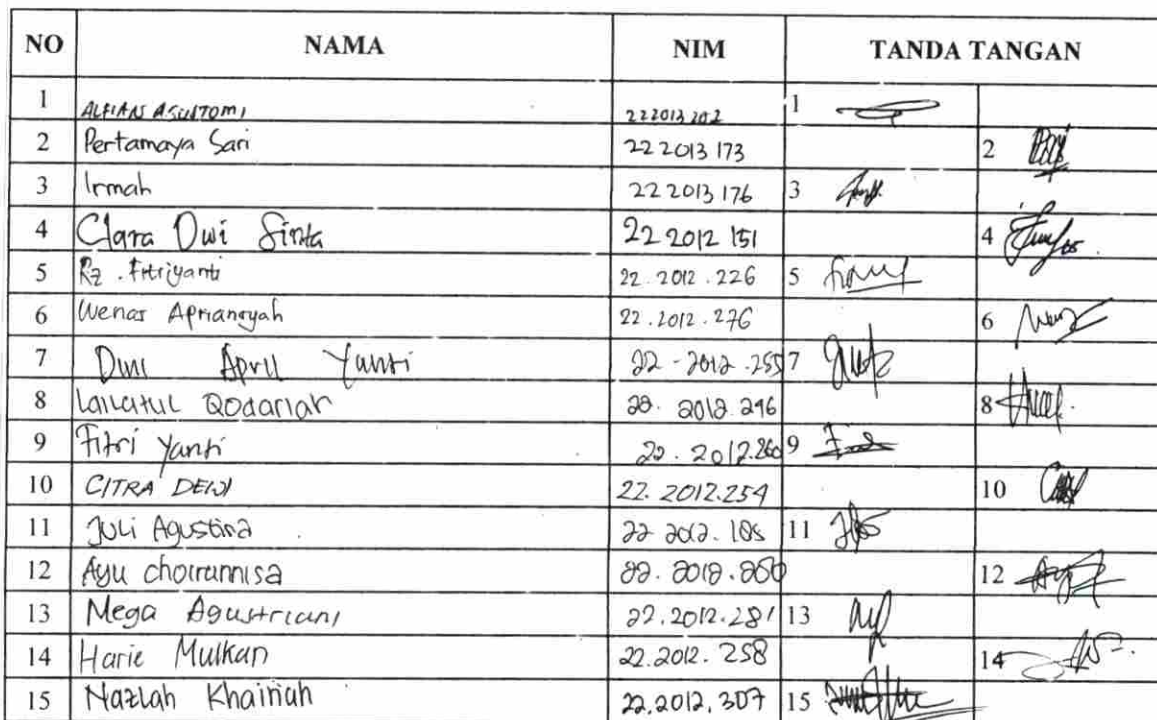 NO NAMA NIM TANDA TANGAN
1 ALFIAN AGUSTOMI 222013202 1
2 Pertamaya Sari 22 2013 173 2
3 Irmah 22 2013 176 3
4 Clara Dwi Sinta 22 2012 151 4
5 Rz . Fitriyanti 22.2012.226 5
6 Wenas Apriansyah 22.2012.276 6
7 Dwi April Yanti 22-2012.255 7
8 Lailatul Qodariah 22. 2012 246 8
9 Fitri Yanti 22.2012.260 9
10 CITRA DEWI 22. 2012.254 10
11 Juli Agustina 22 2012. 185 11
12 Ayu choirannisa 22. 2012. 12
13 Mega Agustriani 22.2012.281 13
14 Harie Mulkan 22.2012. 258 14
15 Nazlah Khairiah 22.2012.307 15